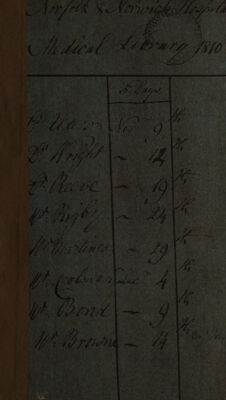 Norfolk & Norwich Hospital
Medical Library 1810
5 Days
Nov 9th
Dr Wright – 12th
Dr Reeve – 19th
Mr Rigby – 24th
Mr Martineau – 29th
Mr Dec 4th
Mr Bond – 9th
Mr Browne – 14